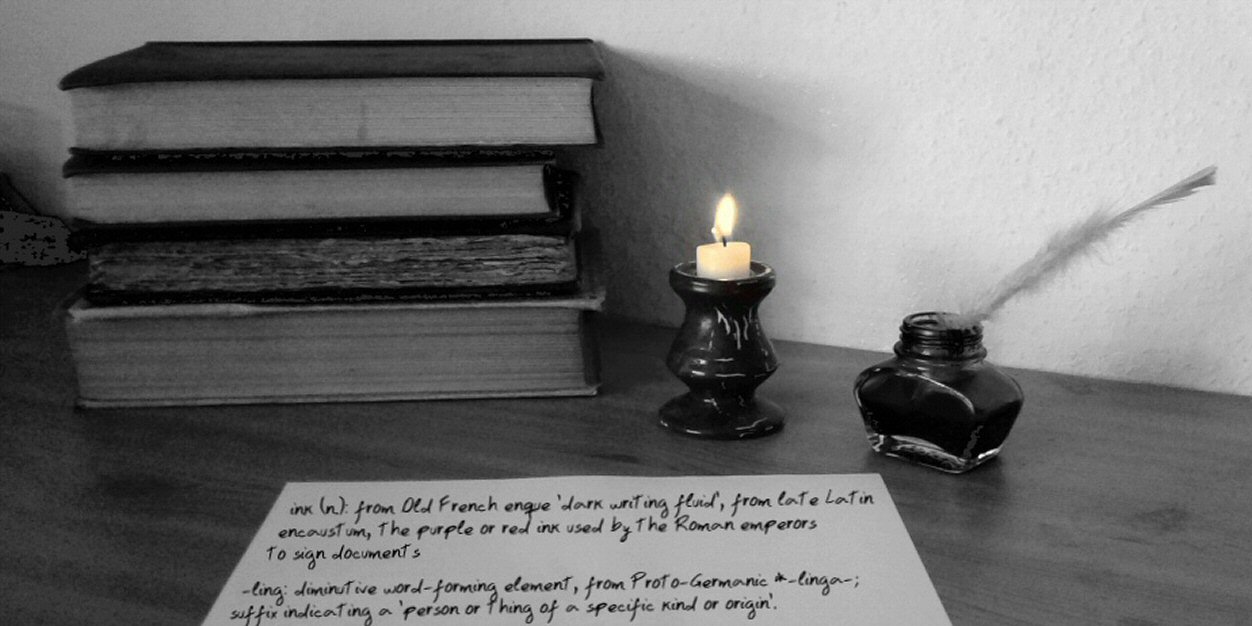 ink (n): from Old French enque 'dark writing fluid', from late Latin
encaustum, the purple or red ink used by the Roman emperors
to sign documents
-ling: diminutive word-forming element, from Proto-Germanic *-linga-;
suffix indicating a 'person or thing of a specific kind or origin'.